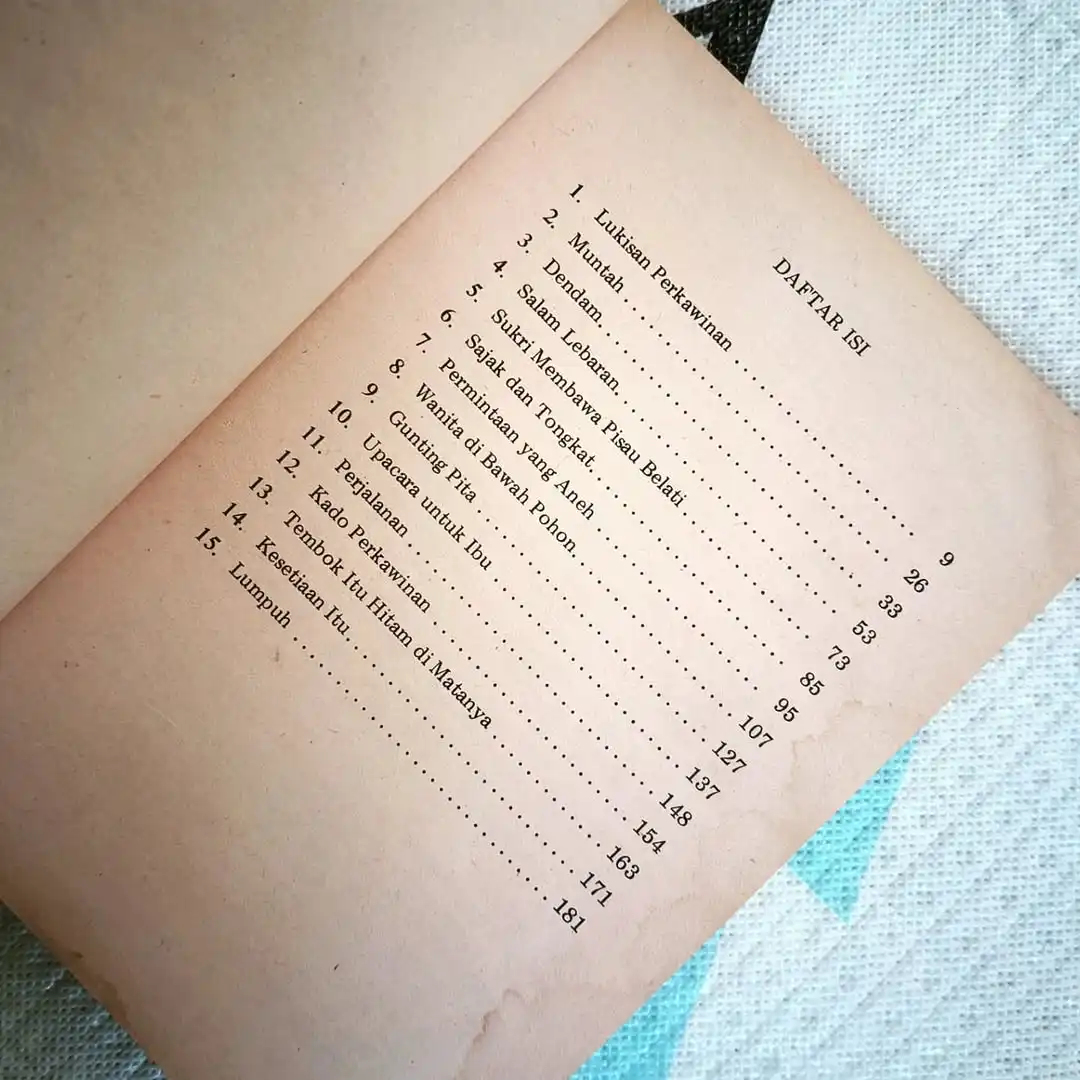 DAFTAR ISI
1. Lukisan Perkawinan . . . . . . . . . . . . . . . . . . . . 9
2. Muntah . . . . . . . . . . . . . . . . . . . . . . . . . . . . . 26
3. Dendam. . . . . . . . . . . . . . . . . . . . . . . . . . . . . 33
4. Salam Lebaran. . . . . . . . . . . . . . . . . . . . . . . . 53
5. Sukri Membawa Pisau Belati . . . . . . . . . . . . . 73
6. Sajak dan Tongkat. . . . . . . . . . . . . . . . . . . . . 85
7. Permintaan yang Aneh . . . . . . . . . . . . . . . . . 95
8. Wanita di Bawah Pohon. . . . . . . . . . . . . . . . . 107
9. Gunting Pita . . . . . . . . . . . . . . . . . . . . . . . . . 127
10. Upacara untuk Ibu . . . . . . . . . . . . . . . . . . . . 137
11. Perjalanan . . . . . . . . . . . . . . . . . . . . . . . . . . 148
12. Kado Perkawinan . . . . . . . . . . . . . . . . . . . . . 154
13. Tembok Itu Hitam di Matanya . . . . . . . . . . . 163
14. Kesetiaan Itu. . . . . . . . . . . . . . . . . . . . . . . . . 171
15. Lumpuh . . . . . . . . . . . . . . . . . . . . . . . . . . . . 181